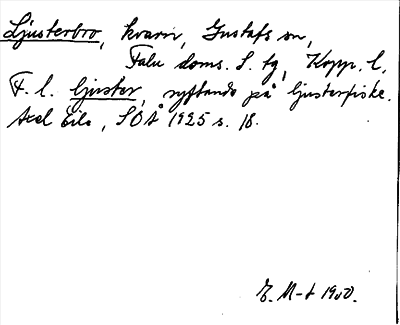 Ljusterbro, kvarn, Gustafs sn,
Falu doms. S. tg, Kopp. l.
F. l. ljuster, syftande på ljusterfiske.
Axel Eils, SOÅ 1925 s. 18.
E. M-t 1900.